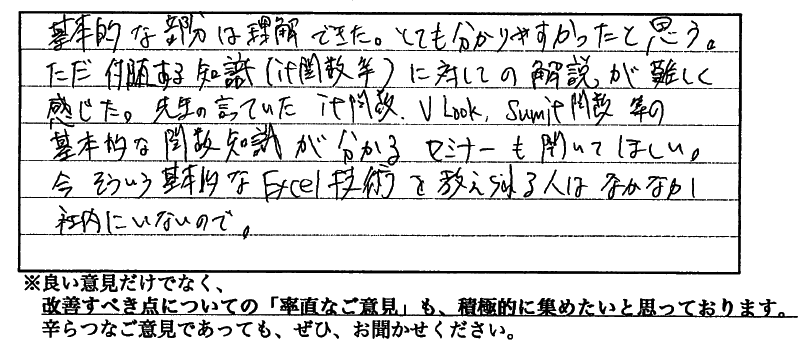 基本的な部分は理解できた。とても分かりやすかったと思う。
ただ付随する知識(if関数等)に対しての解説が難しく
感じた。先生の言っていたif関数、VLook、Sumif関数等の
基本的な関数知識が分かるセミナーも開いてほしい。
今そういう基本的なExcel技術を教えられる人はなかなか
社内にいないので。
※良い意見だけでなく、
改善すべき点についての「率直なご意見」も、積極的に集めたいと思っております。
辛らつなご意見であっても、ぜひ、お聞かせください。